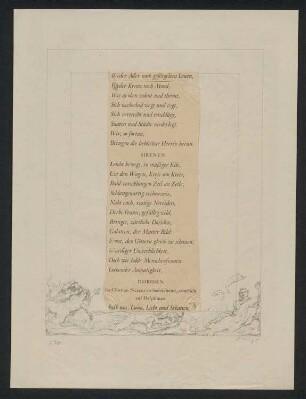 Weder Adler noch geflügelten Leuen,
Weder Kreuz noch Mond,
Wie es oben wohnt und thront,
Sich wechselnd wegt und regt,
Sich vertreibt und totschlägt,
Saaten und Städte niederlegt.
Wir, so fortan,
Bringen die lieblichste Herrin heran.
SIRENEN
Leicht bewegt, in mäßiger Eile,
Um den Wagen, Kreis um Kreis,
Bald verschlungen Zeil' an Zeile,
Schlangenartig reihenweis,
Naht euch, rüstige Nereiden,
Derbe Fraun, gefällig wild,
Bringet, zärtliche Doriden,
Galateen, der Mutter Bild:
Ernst, den Göttern gleich zu schauen,
Würdiger Unsterblichkeit,
Doch wie holde Menschenfrauen
Lockender Anmutigkeit.
DORIDEN
im Chor an Nereus vorbeiziehend, sämtlich
auf Delphinen
Leih uns, Luna, Licht und Schatten,